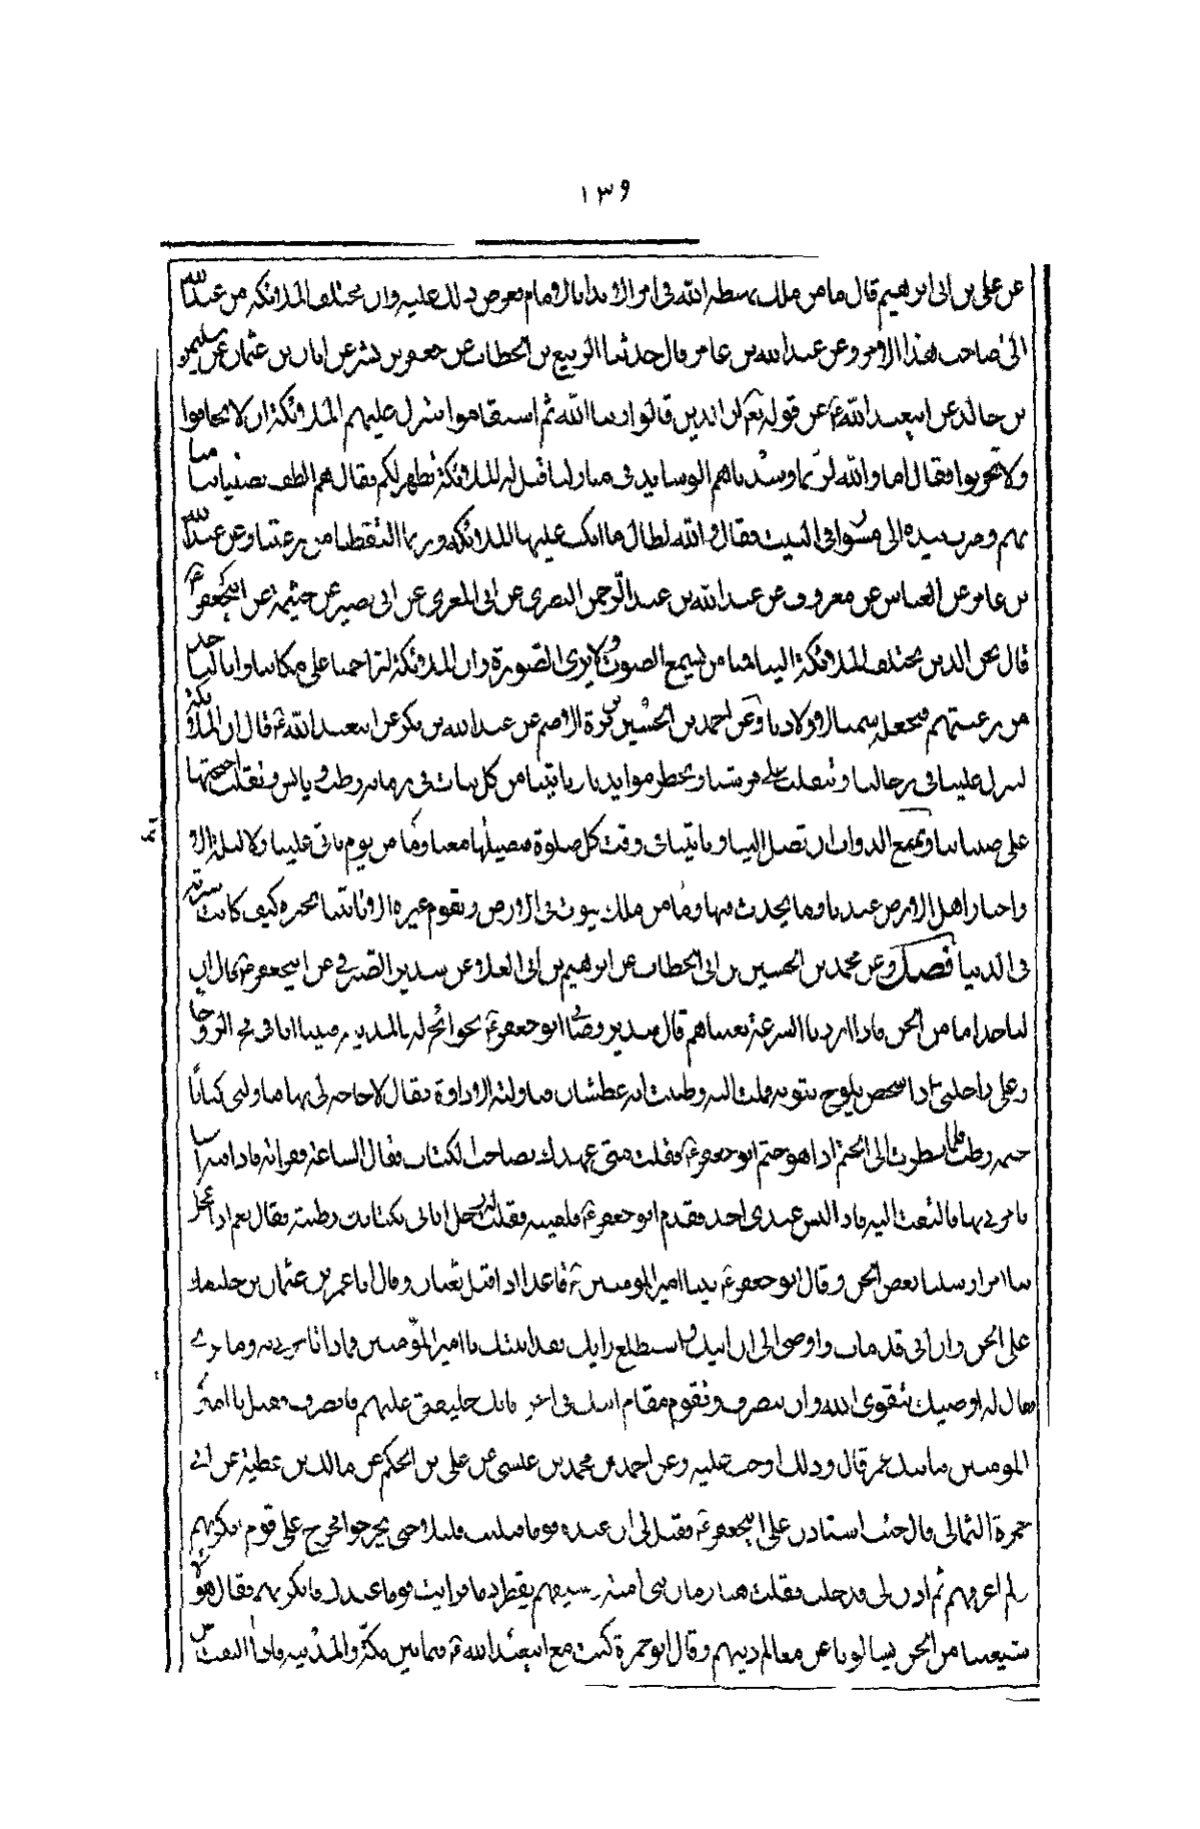 ١٣٩
عن علي بن ابي ابرهيم قال ما من ملك يهبطه الله في امر الا بدا بالامام فعرض ذلك عليه وان مختلف الملائكة من عند الله
الى صاحب هذا الامر وعن عبد الله بن عامر قال حدثنا الربيع بن الخطاب عن جعفر بن بشر عن ابان بن عثمان عن سليمن
بن خالد عن ابيعبد الله ع عن قوله تع ان الذين قالوا ربنا الله ثم استقاموا تتنزل عليهم الملائكة ان لا تخافوا
ولا تحزنوا فقال اما والله لربما وسدناهم الوسايد في منازلنا قيل له الملائكة تظهر لكم فقال هم الطف بصبياننا منا
بهم وضرب بيده الى مسور في البيت فقال والله لطال ما اتكت عليها الملائكة وربما التقطنا من زغبها وعن عبد الله
بن عامر عن العباس عن معروف عن عبد الله بن عبد الرحمن البصري عن ابي المعزى عن ابي بصير عن خيثمة عن ابيجعفر ع
قال نحن الذين مختلف الملائكة الينا فمنا من يسمع الصوت ولا يرى الصورة وان الملائكة لتزاحمنا على تكاتنا وانا لناخذ
من زغبهم فنجعله سخابا لاولادنا وعن احمد بن الحسين بن قرة الاصم عن عبد الله بن بكر عن ابيعبد الله ع قال ان الملائكة
لتنزل علينا في رحالنا وتتقلب على فرشنا وتحضر موايدنا وياتينا من كل نبات في زمانه رطب ويابس وتقلب اجنحتها
على صبياننا وتمنع الدواب ان تصل الينا وياتينا في وقت كل صلوة فتصليها معنا وما من يوم ياتي علينا ولا ليلة الا
واخبار اهل الارض عندنا وما يحدث فيها وما من ملك يموت في الارض ويقوم غيره الا واتينا بخبره كيف كانت سيرته
في الدنيا فصل وعن محمد بن الحسين بن ابي الخطاب عن ابرهيم بن ابي العلا عن سدير الصيرفي عن ابيجعفر ع قال ان
لنا خداما من الجن فاذا اردنا السرعة بعثناهم قال سدير وصاني ابو جعفر ع بحوائج له بالمدينه فبينا انا في فج الروحا
وعلى راحلتي اذا شخص يلوي بثوبه فملت اليه وظننت انه عطشان فناولته الاداوة فقال لا حاجه لي بها فناولني كتابا
ختمه رطب فنظرت الى الختم اذا هو ختم ابو جعفر ع فقلت متى عهدك بصاحب الكتاب فقال الساعة فقراته فاذا فيه اشيا
يامرني بها فالتفت اليه فاذا ليس عندي احد فقدم ابو جعفر ع فلقيته فقلت له رجل اتاني بكتابك رطبة فقال نعم اذا عجل
بنا امر ارسلنا بعض الجن وقال ابو جعفر ع بينا امير المومنين ع قاعدا اذ اقبل ثعبان وقال انا عمر بن عثمان بن خليفتك
على الجن وان ابي قد مات واوصى الى ان اتيك واستطلع رايك فقد اتيتك يا امير المومنين فماذا تامرني به وما ترى
فقال له اوصيك بتقوى الله وان تنصرف وتقوم مقام ابيك في الجن فانك خليفتي عليهم فانصرف فقيل يا امير
المومنين فياتيك عمر قال وذلك اوجب عليه وعن احمد بن محمد بن عيسى عن علي بن الحكم عن مالك بن عطية عن ابي
حمزة الثمالي قال جئت استاذن على ابيجعفر ع فقيل لي ان عنده قوما فلبثت قليلا حتى يخرجوا فخرج على قوم انكرتهم
ولم اعرفهم ثم اذن لي فدخلت فقلت هذا زمان بني امية وسيفهم يقطر دما فرايت قوما عندك فانكرتهم فقال هولا
شيعتنا من الجن يسالونا عن معالم دينهم وقال ابو حمزة كنت مع ابيعبد الله ع فيما بين مكة والمدينه فاذا التفت عن